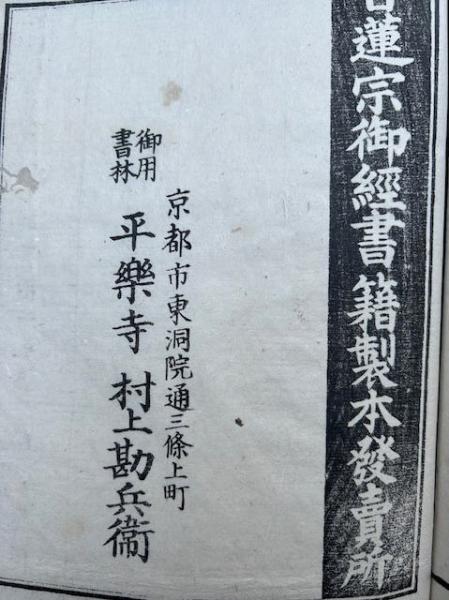 蓮宗御經書籍製本發賣所
京都市東洞院通三條上町
御用
書林
平樂寺 村上勘兵衞